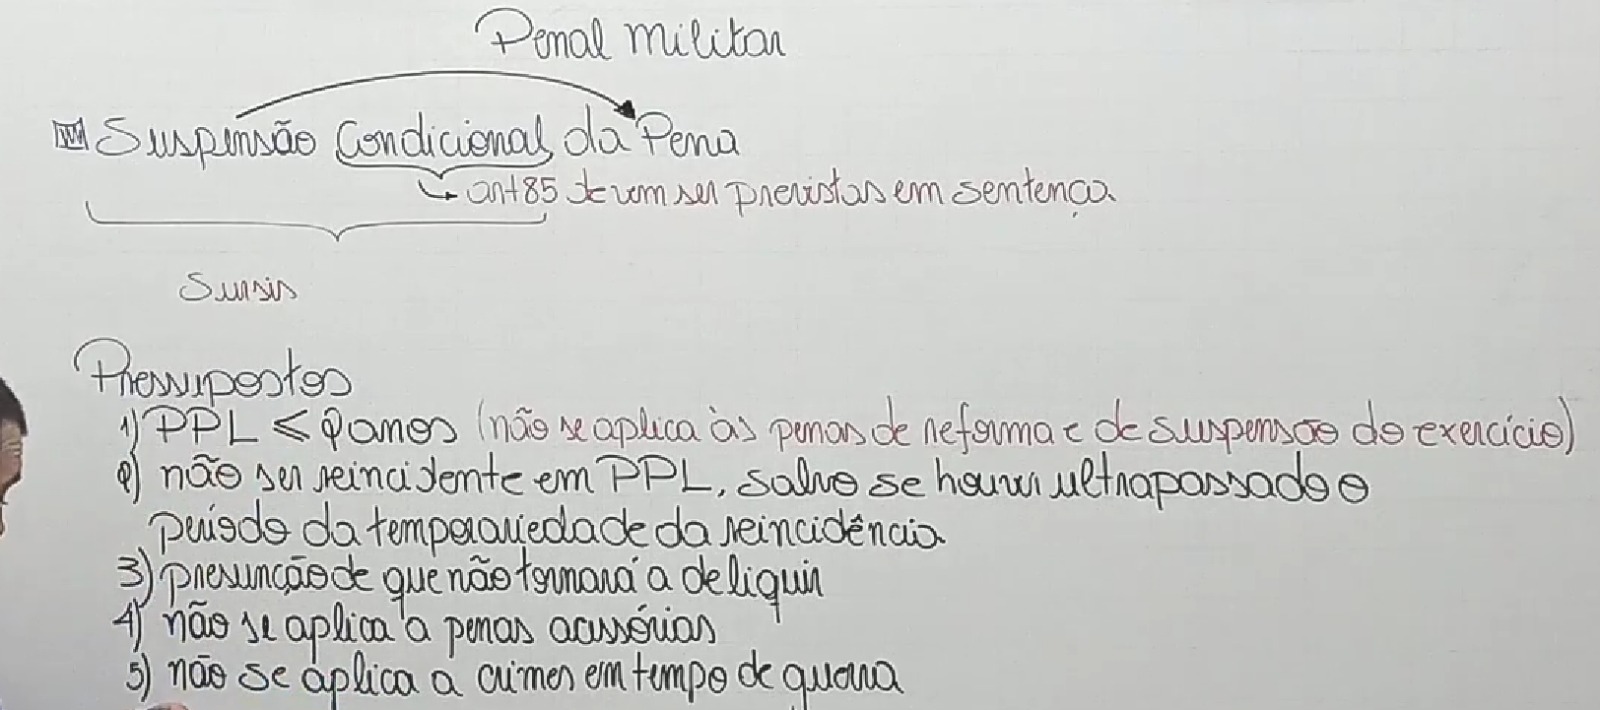 Penal militar
Suspensão Condicional da Pena
art 85 devem ser previstas em sentença
Sursis
Pressupostos
1) PPL ≤ 2 anos (não se aplica às penas de reforma e de suspensão do exercício)
2) não ser reincidente em PPL, salvo se houver ultrapassado o
período da temporariedade da reincidência
3) presunção de que não tornará a deliquir
4) não se aplica a penas acessórias
5) não se aplica a crimes em tempo de guerra